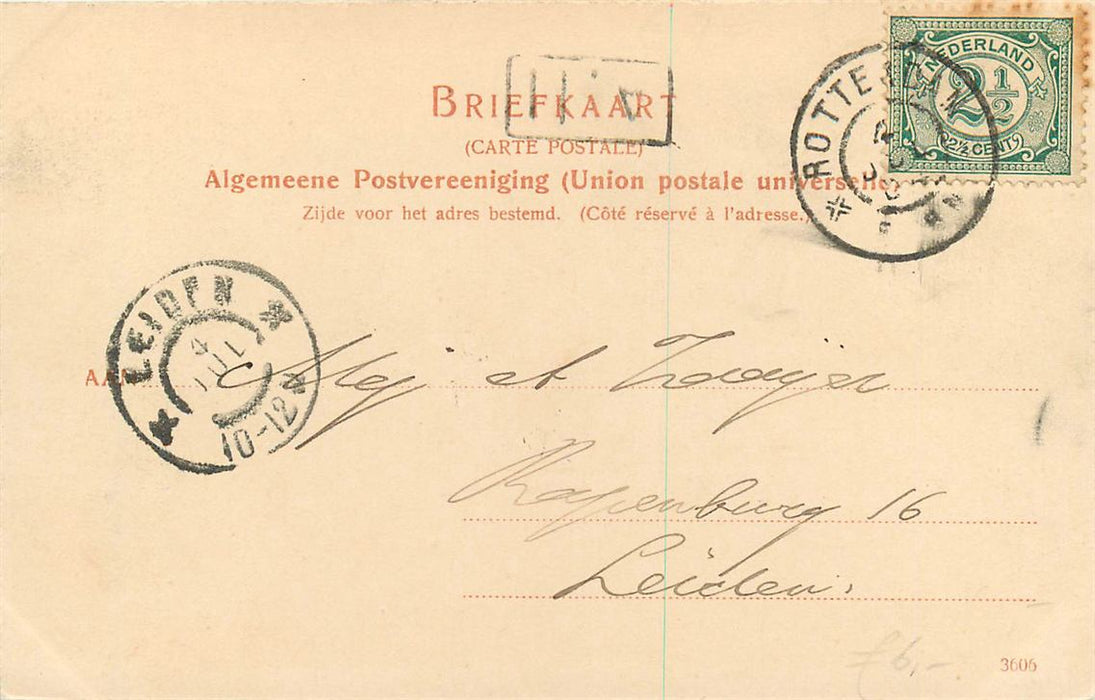 NEDERLAND
2 1/2
2½ CENT
ROTTERDAM
BRIEFKAART
(CARTE POSTALE)
Algemeene Postvereeniging (Union postale universelle)
Zijde voor het adres bestemd. (Côté réservé à l'adresse.)
LEIDEN
4 JUL
10-12
AAN Mej
Rapenburg 16
Leiden.
f 6,-
3606